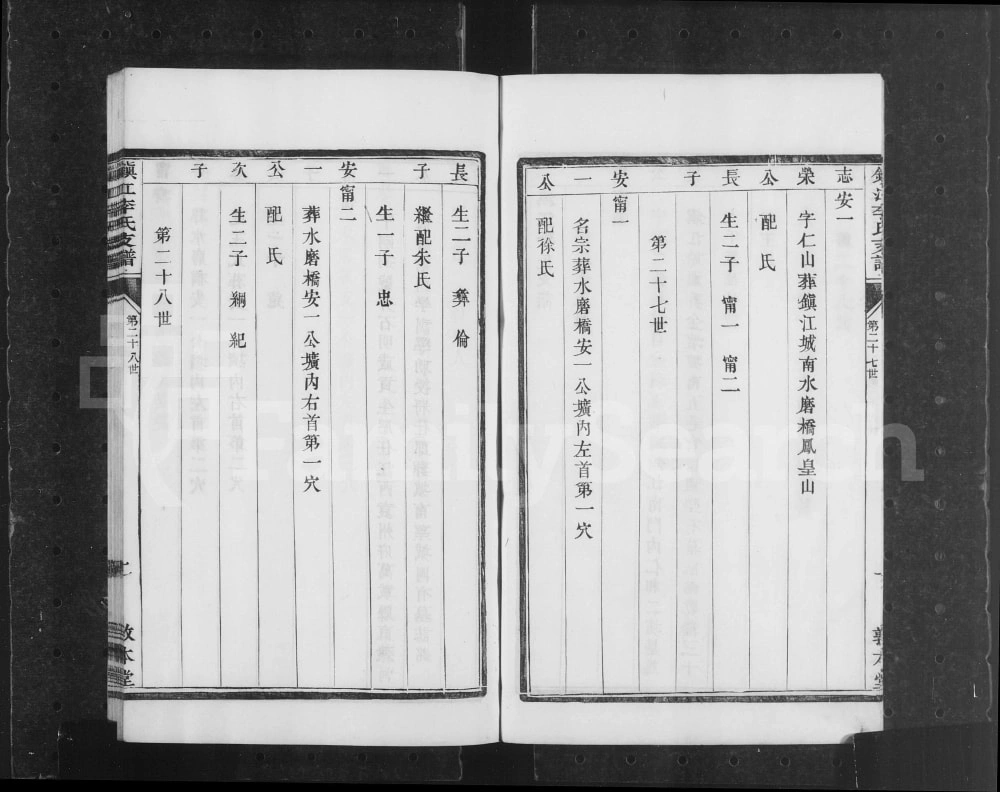 志安一
榮 字仁山葬鎮江城南水磨橋鳳皇山
公 配 氏
長 生二子 甯一 甯二
子
第二十七世
安 甯一
一 名宗葬水磨橋安一公壙內左首第一穴
公 配徐氏
第二十七世
長 生二子 彝 倫
子 繼配朱氏
生一子 忠
安 甯二
一 葬水磨橋安一公壙內右首第一穴
公 配 氏
次 生二子 綱 紀
子
第二十八世
鎮江李氏支譜
第二十八世
敦本堂
FamilySearch